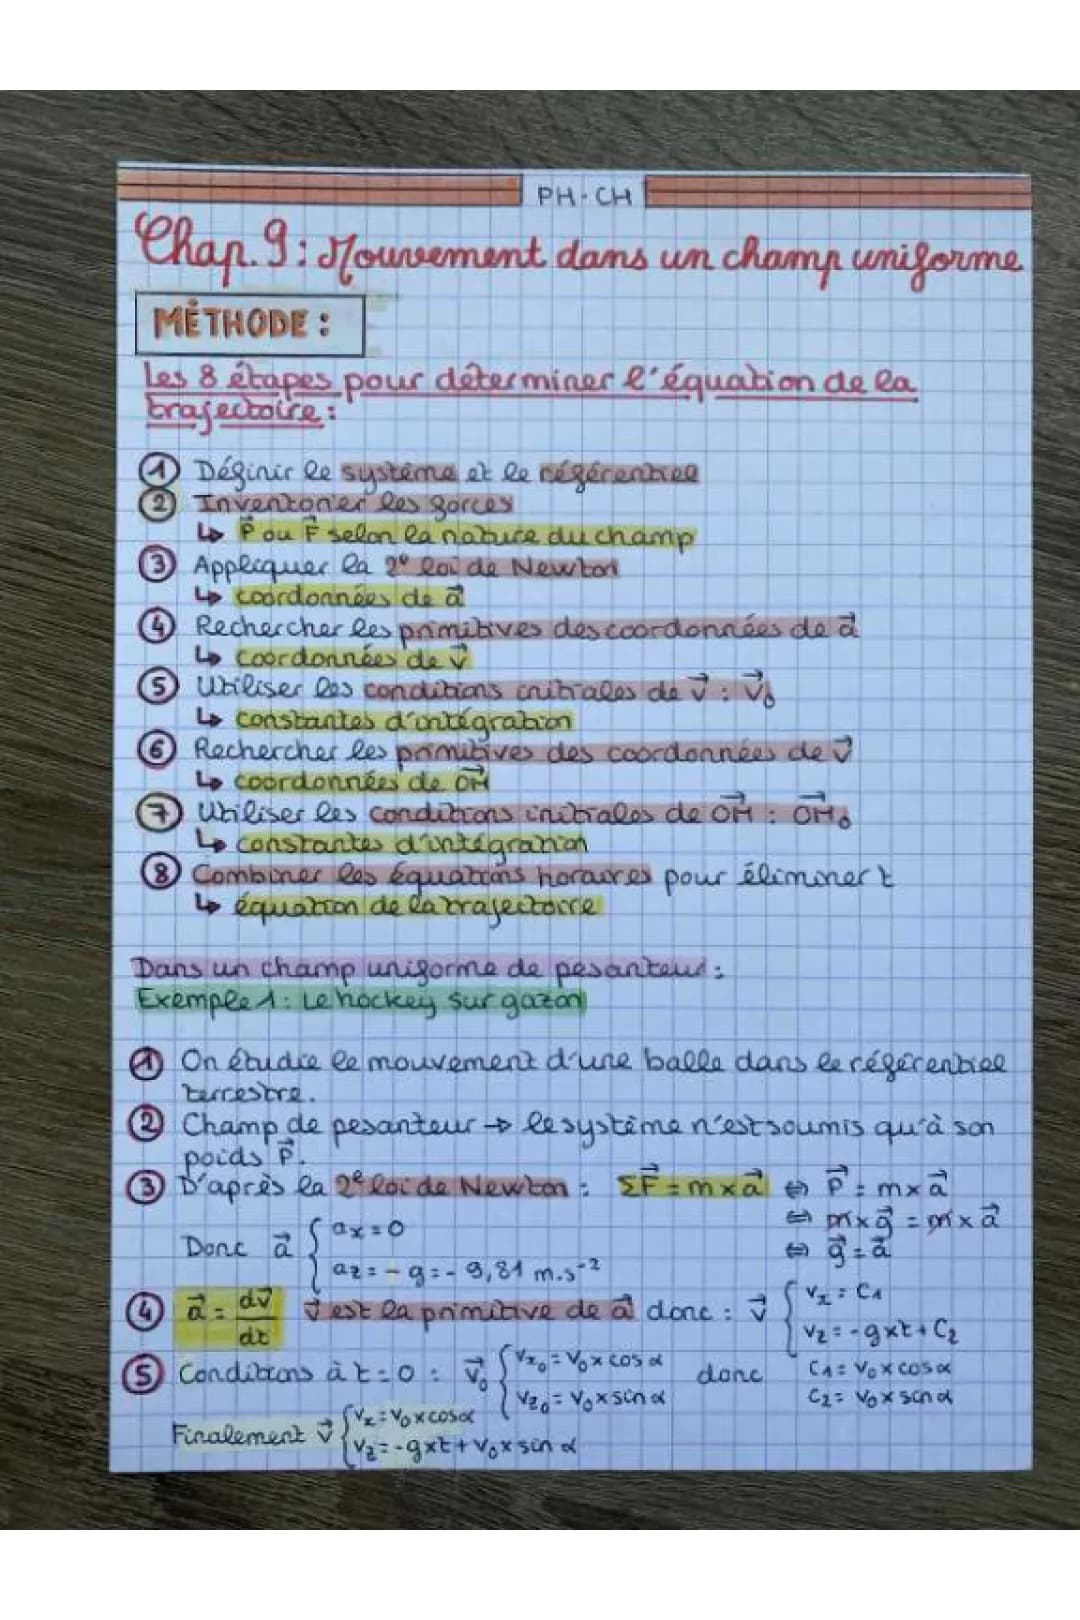 PH-CH
Chap.9: Mouvement dans un champ uniforme
MÉTHODE :
Les 8 étapes pour déterminer l'équation de la
trajectoire :
① Définir le système et le référentiel
② Inventorier les forces
↳ P⃗ ou F⃗ selon la nature du champ
③ Appliquer la 2e loi de Newton
↳ coordonnées de a⃗
④ Rechercher les primitives des coordonnées de a⃗
↳ coordonnées de v⃗
⑤ Utiliser les conditions initiales de v⃗ : v⃗₀
↳ constantes d'intégration
⑥ Rechercher les primitives des coordonnées de v⃗
↳ coordonnées de OM⃗
⑦ Utiliser les conditions initiales de OM⃗ : OM⃗₀
↳ constantes d'intégration
⑧ Combiner les équations horaires pour éliminer t
↳ équation de la trajectoire
Dans un champ uniforme de pesanteur :
Exemple 1 : Le hockey sur gazon
① On étudie le mouvement d'une balle dans le référentiel
terrestre.
② Champ de pesanteur → le système n'est soumis qu'à son
poids P⃗.
③ D'après la 2e loi de Newton : ΣF⃗ = m×a⃗ ⇔ P⃗ = m×a⃗
⇔ m×g⃗ = m×a⃗
Donc a⃗ { ax = 0 ⇔ g⃗ = a⃗
az = -g = -9,81 m.s⁻²
④ a⃗ = dv⃗/dt v⃗ est la primitive de a⃗ donc : v⃗ { vx = C1
vz = -g×t + C2
⑤ Conditions à t=0 : v⃗₀ { vx₀ = v₀×cos α donc C1 = v₀×cos α
vz₀ = v₀×sin α C2 = v₀×sin α
Finalement v⃗ { vx = v₀×cos α
vz = -g×t + v₀×sin α